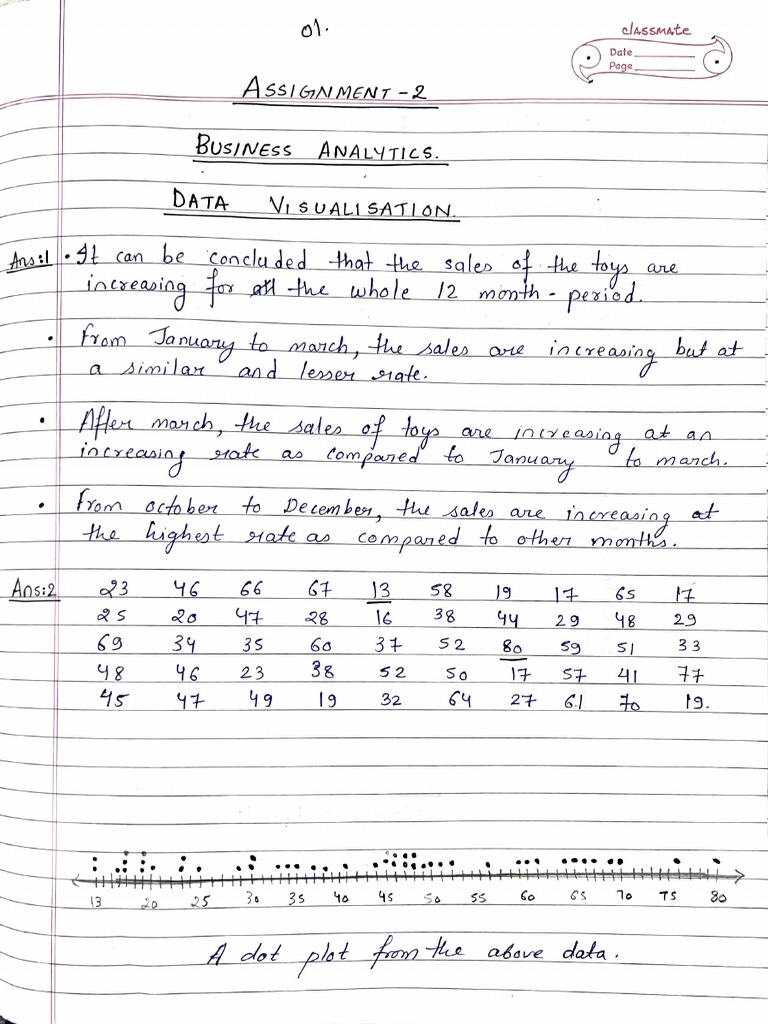 01.
classmate
Date
Page
ASSIGNMENT-2
BUSINESS ANALYTICS.
DATA VISUALISATION.
Ans:1 • It can be concluded that the sales of the toys are
increasing for the whole 12 month-period.
• From January to march, the sales are increasing but at
a similar and lesser rate.
• After march, the sales of toys are increasing at an
increasing rate as compared to January to march.
• From october to December, the sales are increasing at
the highest rate as compared to other months.
Ans:2 23 46 66 67 13 58 19 17 65 17
25 20 47 28 16 38 44 29 48 29
69 34 35 60 37 52 80 59 51 33
48 46 23 38 52 50 17 57 41 77
45 47 49 19 32 64 27 61 70 19.
13 20 25 30 35 40 45 50 55 60 65 70 75 80
A dot plot from the above data.